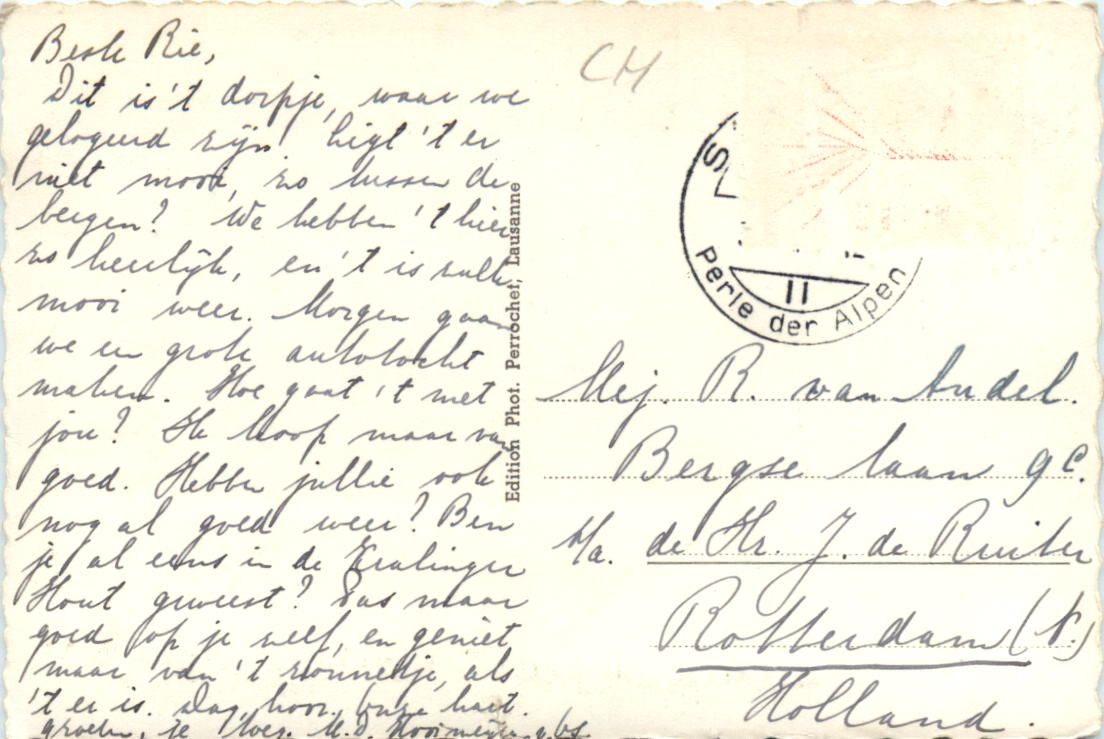 Beste Rie,
Dit is 't dorpje, waar we
gelogeerd zijn. Ligt 't er
niet mooi, zo tussen de
bergen? We hebben 't hier
zo heerlijk, en 't is zulk
mooi weer. Morgen gaan
we een grote autotocht
maken. Hoe gaat 't met
jou? Ik hoop maar van
goed. Hebben jullie ook
nog al goed weer? Ben
je al eens in de Kralinger
Hout geweest? Pas maar
goed op je zelf, en geniet
maar van 't zonnetje, als
't er is. Dag, hoor, onze hart.
groeten, je toeg. M.D.
Edition Phot. Perrochet, Lausanne
CH
Perle der Alpen
II
Mej. R. van Andel.
Bergse laan 9c.
de Hr. J. de Ruiter
Rotterdam (N.)
Holland.